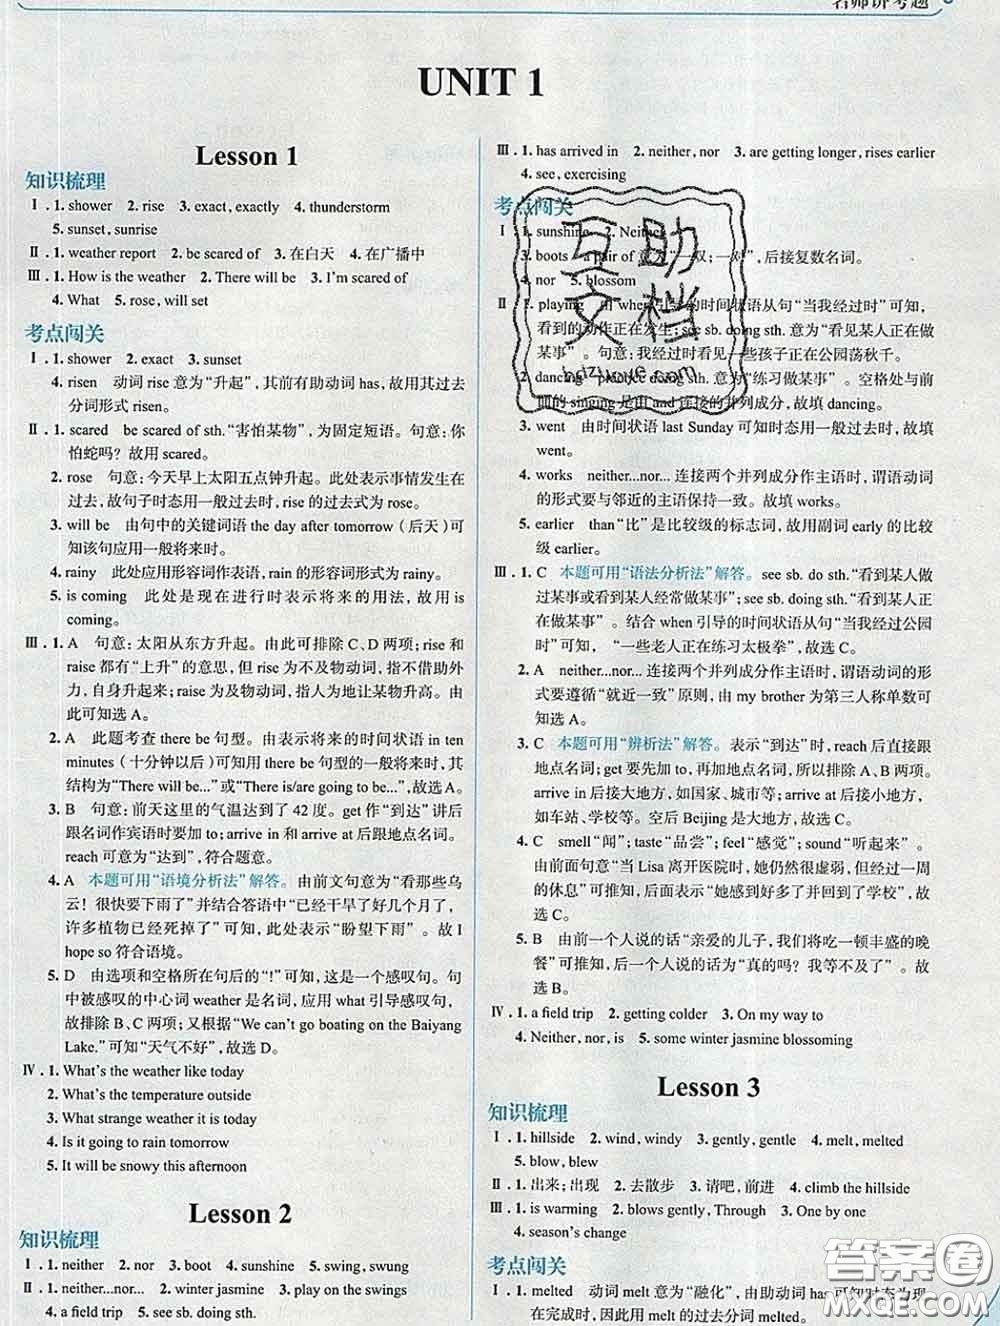 名师讲考题
UNIT 1
Lesson 1
知识梳理
Ⅰ. 1. shower 2. rise 3. exact, exactly 4. thunderstorm
5. sunset, sunrise
Ⅱ. 1. weather report 2. be scared of 3. 在白天 4. 在广播中
Ⅲ. 1. How is the weather 2. There will be 3. I'm scared of
4. What 5. rose, will set
考点闯关
Ⅰ. 1. shower 2. exact 3. sunset
4. risen 动词 rise 意为“升起”,其前有助动词 has, 故用其过去
分词形式 risen。
Ⅱ. 1. scared be scared of sth. “害怕某物”, 为固定短语。句意: 你
怕蛇吗? 故用 scared。
2. rose 句意: 今天早上太阳五点钟升起。此处表示事情发生在
过去, 故句子时态用一般过去时, rise 的过去式为 rose。
3. will be 由句中的关键词语 the day after tomorrow (后天)可
知该句应用一般将来时。
4. rainy 此处应用形容词作表语, rain 的形容词形式为 rainy。
5. is coming 此处是现在进行时表示将来的用法, 故用 is
coming。
Ⅲ. 1. A 句意: 太阳从东方升起。由此可排除 C、D 两项; rise 和
raise 都有“上升”的意思, 但 rise 为不及物动词, 指不借助外
力, 自身升起来; raise 为及物动词, 指人为地让某物升高。由
此可知选 A。
2. A 此题考查 there be 句型。由表示将来的时间状语 in ten
minutes (十分钟以后)可知用 there be 句型的一般将来时, 其
结构为“There will be...”或“There is/are going to be...”, 故选 A。
3. B 句意: 前天这里的气温达到了 42 度。get 作“到达”讲后
跟名词作宾语时要加 to; arrive in 和 arrive at 后跟地点名词。
reach 可意为“达到”, 符合题意。
4. A 本题可用“语境分析法”解答。由前文句意为“看那些乌
云! 很快要下雨了”并结合答语中“已经干旱了好几个月了,
许多植物已经死掉了”可知, 此处表示“盼望下雨”。故 I
hope so 符合语境。
5. D 由选项和空格所在句后的“!”可知, 这是一个感叹句。句
中被感叹的中心词 weather 是名词, 应用 what 引导感叹句,
故排除 B、C 两项; 又根据“We can't go boating on the Baiyang
Lake.”可知“天气不好”, 故选 D。
Ⅳ. 1. What's the weather like today
2. What's the temperature outside
3. What strange weather it is today
4. Is it going to rain tomorrow
5. It will be snowy this afternoon
Lesson 2
知识梳理
Ⅰ. 1. neither 2. nor 3. boot 4. sunshine 5. swing, swung
Ⅱ. 1. neither...nor... 2. winter jasmine 3. play on the swings
4. a field trip 5. see sb. doing sth.
Ⅲ. 1. has arrived in 2. neither, nor 3. are getting longer, rises earlier
4. see, exercising
考点闯关
Ⅰ. 1. sunshine 2. Neither
3. boots a pair of 意为“一双; 一对”, 后接复数名词。
4. nor 5. blossom
Ⅱ. 1. playing 由 when 引导的时间状语从句“当我经过时”可知,
看到的动作正在发生; see sb. doing sth. 意为“看见某人正在做
某事”。句意: 我经过时看见一些孩子正在公园荡秋千。
2. dancing practice doing sth. 意为“练习做某事”。空格处与前
面的 singing 是由 and 连接的并列成分, 故填 dancing。
3. went 由时间状语 last Sunday 可知时态用一般过去时, 故填
went。
4. works neither...nor... 连接两个并列成分作主语时, 谓语动词
的形式要与邻近的主语保持一致。故填 works。
5. earlier than“比”是比较级的标志词, 故用副词 early 的比较
级 earlier。
Ⅲ. 1. C 本题可用“语法分析法”解答。see sb. do sth. “看到某人做
过某事或看到某人经常做某事”; see sb. doing sth. “看到某人正在
做某事”。结合 when 引导的时间状语从句“当我经过公园
时”可知, “一些老人正在练习太极拳”, 故选 C。
2. A neither...nor... 连接两个并列成分作主语时, 谓语动词的形
式要遵循“就近一致”原则, 由 my brother 为第三人称单数可
知选 A。
3. C 本题可用“辨析法”解答。表示“到达”时, reach 后直接跟
地点名词; get 要先加 to, 再加地点名词, 所以排除 A、B 两项。
arrive in 后接大地方, 如国家、城市等; arrive at 后接小地方,
如车站、学校等。空后 Beijing 是大地方, 故选 C。
4. C smell “闻”; taste “品尝”; feel “感觉”; sound “听起来”。
由前面句意“当 Lisa 离开医院时, 她仍然很虚弱, 但经过一周
的休息”可推知, 后半句表示“她感到好多了并回到了学校”, 故
选 C。
5. B 由前一个人说的话“亲爱的儿子, 我们将吃一顿丰盛的晚
餐”可推知, 后一个人说的话为“真的吗? 我等不及了”。故
选 B。
Ⅳ. 1. a field trip 2. getting colder 3. On my way to
4. Neither, nor, is 5. some winter jasmine blossoming
Lesson 3
知识梳理
Ⅰ. 1. hillside 2. wind, windy 3. gently, gentle 4. melt, melted
5. blow, blew
Ⅱ. 1. 出来; 出现 2. 去散步 3. 请吧, 前进 4. climb the hillside
Ⅲ. 1. is warming 2. blows gently, Through 3. One by one
4. season's change
考点闯关
Ⅰ. 1. melted 动词 melt 意为“融化”, 由助动词 has 可知时态为现
在完成时, 因此用 melt 的过去分词 melted。
互助
文档
答案圈
MXQE.COM